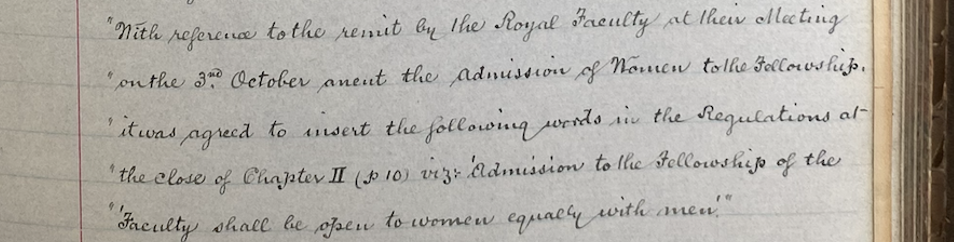 "With reference to the remit by the Royal Faculty at their Meeting
"on the 3rd October anent the admission of Women to the Fellowship,
"it was agreed to insert the following words in the Regulations at
"the close of Chapter II (p 10) viz: 'Admission to the Fellowship of the
"'Faculty shall be open to women equally with men'."